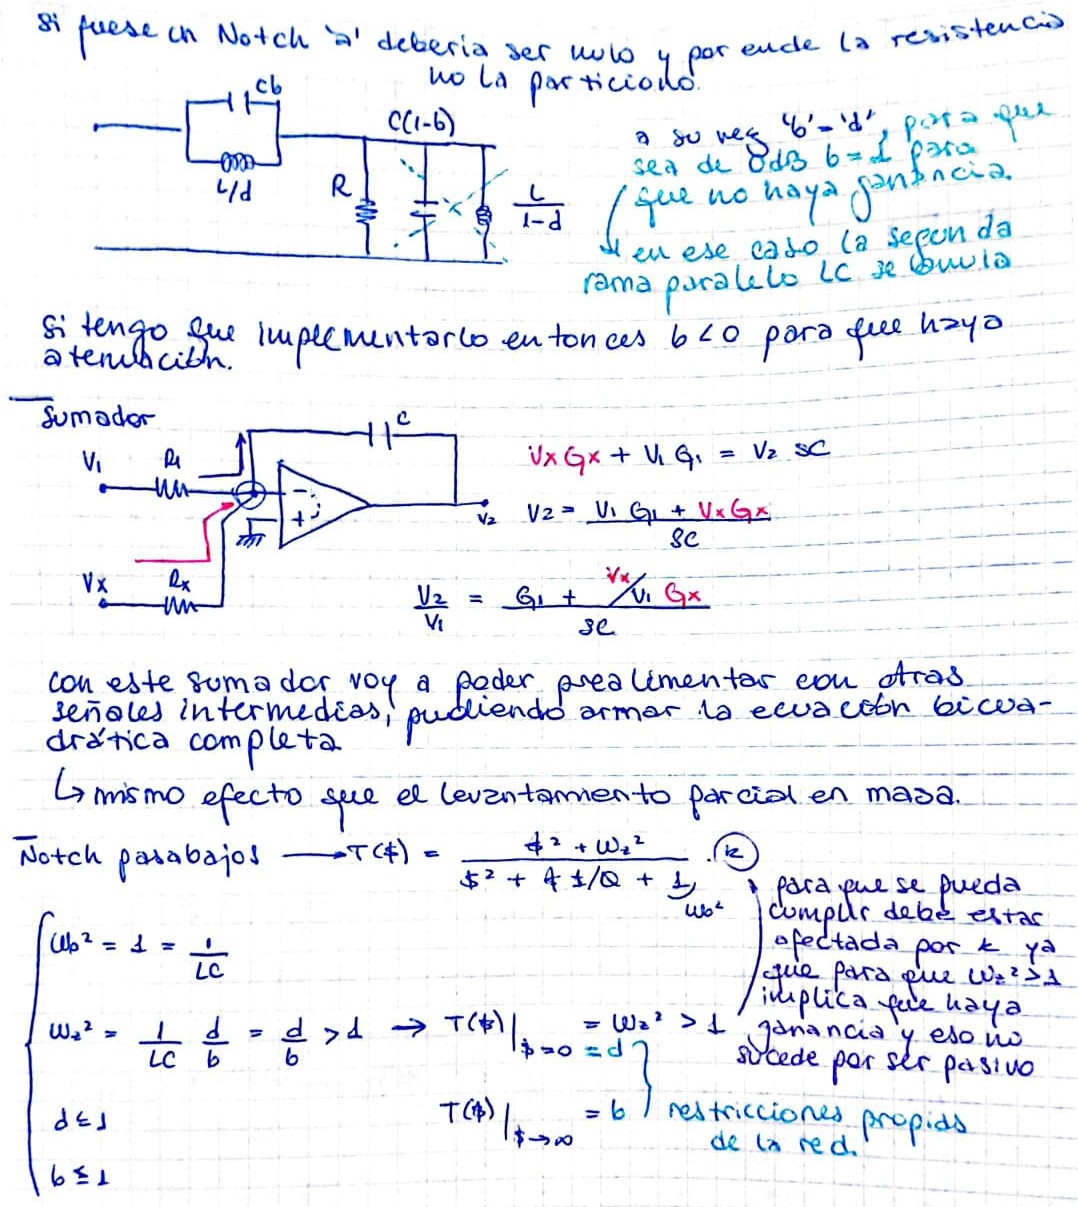 Si fuese un Notch 'a' deberia ser nulo y por ende la resistencia
no la particiono.
Cb
L/d
C(1-b)
R
L/1-d
a su vez 'b'='d', para que
sea de 0dB b=1 para
que no haya ganancia.
en ese caso la segunda
rama paralelo LC se anula
Si tengo que implementarlo entonces b<0 para que haya
atenuación.
Sumador
V1
R1
C
V2
Vx
Rx
Vx Gx + V1 G1 = V2 SC
V2 = V1 G1 + Vx Gx / SC
V2/V1 = G1 + Vx/V1 Gx / SC
con este sumador voy a poder prealimentar con otras
señales intermedias, pudiendo armar la ecuación bicua-
drática completa
↳ mismo efecto que el levantamiento parcial en masa.
Notch pasabajos → T($) = $² + ωz² / $² + $ 1/Q + 1 . k
ω0²
para que se pueda
cumplir debe estar
afectada por k ya
que para que ωz²>1
implica que haya
ganancia y eso no
sucede por ser pasivo
ω0² = 1 = 1/LC
ωz² = 1/LC d/b = d/b > 1 → T($)|$=0 = ωz² > 1
= d
d≤1
T($)|$→∞ = b
restricciones propias
de la red.
b≤1